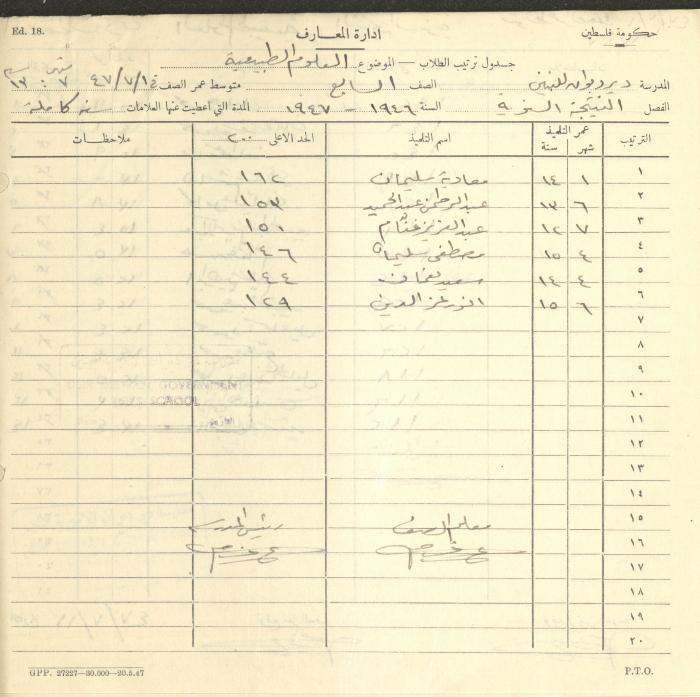 Ed. 18.
ادارة المعارف
حكومة فلسطين
جدول ترتيب الطلاب — الموضوع العلوم الطبيعية
المدرسة دير ديوان للبنين الصف السابع متوسط عمر الصف في ٤٧/٧/١
الفصل النتيجة السنوية السنة ١٩٤٦ - ١٩٤٧ المدة التي اعطيت عنها العلامات سنة كاملة
الترتيب عمر التلميذ شهر سنة اسم التلميذ الحد الاعلى ٢٠٠ ملاحظات
١ ١ ١٤ معاوية سليمان ١٦٢
٢ ٦ ١٣ عبد الرحمن عبد الحميد ١٥٣
٣ ٧ ١٢ عبد العزيز غنام ١٥١
٤ ٤ ١٥ مصطفى سليمان ١٤٦
٥ ٤ ١٤ سعيد نعمان ١٤٤
٦ ٦ ١٥ انور عز الدين ١٢٩
٧
٨
٩
١٠
١١
١٢
١٣
١٤
١٥ معلم الصف رئيس المدرسة
١٦
١٧
١٨
١٩
٢٠
GPP. 27227—30.000—20.5.47
P.T.O.